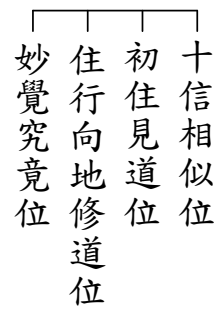 十信相似位
初住見道位
住行向地修道位
妙覺究竟位